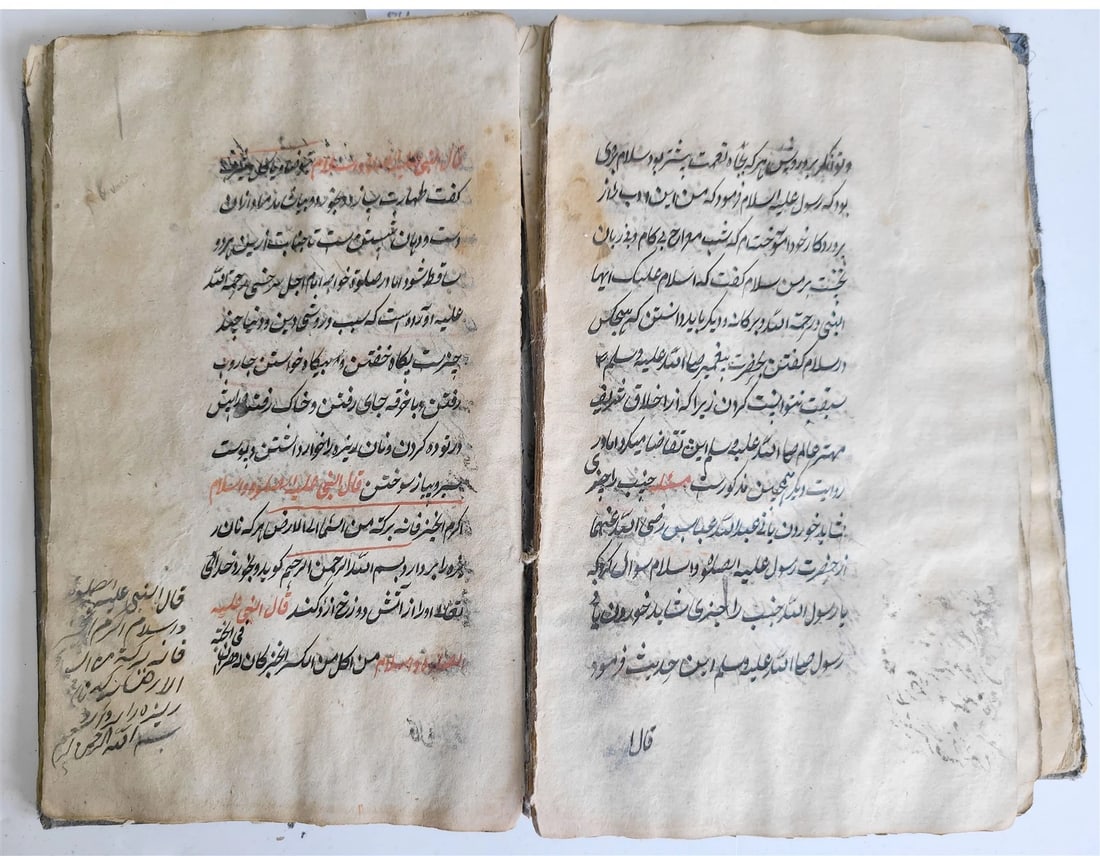 و توانگر بر درویش هر که بجاه و نعمت بیشتر بود سلام بروی
بود که رسول علیه السلام فرمود که من این ادب از
پروردکار خود آموختم که شب معراج بی کام و بی زبان
نخست بر من سلام کفت که السلام علیک ایها
النبی و رحمة الله و برکاته و دیکر باید دانستن که هیچکس
در سلام کفتن بحضرت پیغمبر صلی الله علیه و سلم
سبقت نتوانست کردن زیرا که از اخلاق شریف
مهتر عالم صلی الله علیه و سلم این تقاضا میکرد اما در
روایت دیکر همچنین مذکورست مسئله جنب را چیزی
نشاید خوردن یا نی عبد الله عباس رضی الله عنهما
از حضرت رسول علیه الصلوة والسلام سوال کرد که
یا رسول الله جنب را چیزی شاید خوردن یا نی
رسول صلی الله علیه وسلم این حدیث فرمود
قال ا
قال النبی علیه الصلوة والسلام
کفت طهارت
دست و دهان شستن است تا جنابت ازین هر دو
ساقط شود اما در صلوة خواجه امام اجل سرخسی رحمة الله
علیه آورده است که سبب درویشی دین و دنیا چند
چیزست پکاه خفتن و بیکاه خواستن جاروب
رفتن و با خرقه جای رفتن و خاک رفته
در توده کردن و نان ریزه را خوار داشتن و پوست
سیر و پیاز سوختن قال النبی علیه الصلوة والسلام
اکرم الخبز فانه برکة من السماء الی الارض هر که نان ر
یزه را بردارد و بسم الله الرحمن الرحیم کوید و بخورد خدای
تعالی او را از آتش دوزخ آزاد کند قال النبی علیه
الصلوة والسلام من اکل من الکسر الخبز کان له
فی الجنة
قال النبی علیه الصلوة
والسلام اکرم
فانه برکة من ال
الارض
ریزه را بردارد
بسم الله الرحمن